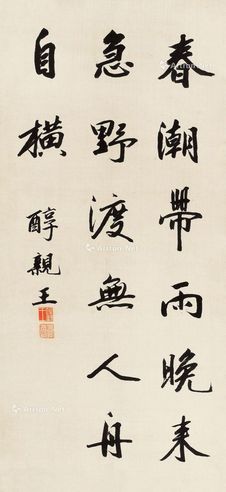 春潮帶雨晚来
急野渡無人舟
自橫
醇親王